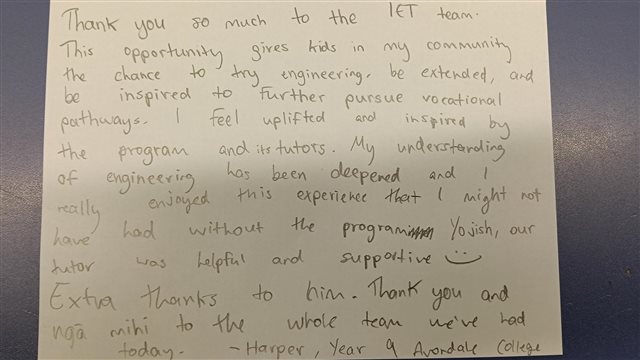 Thank you so much to the IET team.
This opportunity gives kids in my community
the chance to try engineering, be extended, and
be inspired to further pursue vocational
pathways. I feel uplifted and inspired by
the program and its tutors. My understanding
of engineering has been deepened and I
really enjoyed this experience that I might not
have had without the program Yojish, our
tutor was helpful and supportive
Extra thanks to him. Thank you and
ngā mihi to the whole team we've had
today. - Harper, Year 9 Avondale College